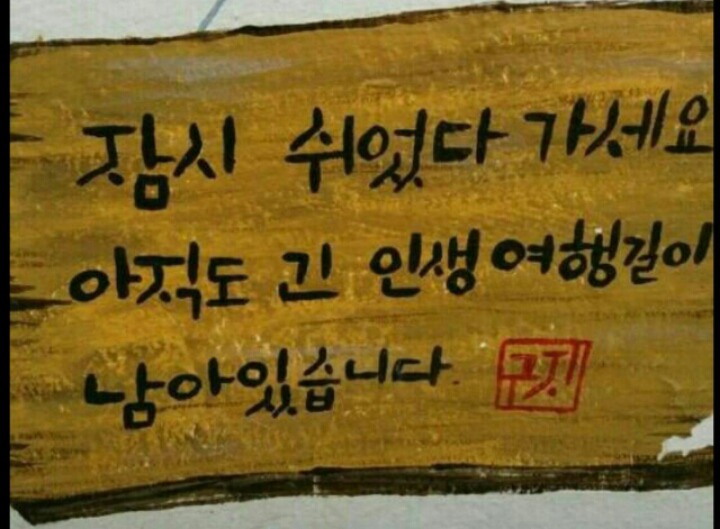 잠시 쉬었다 가세요
아직도 긴 인생여행길이
남아있습니다.
구지